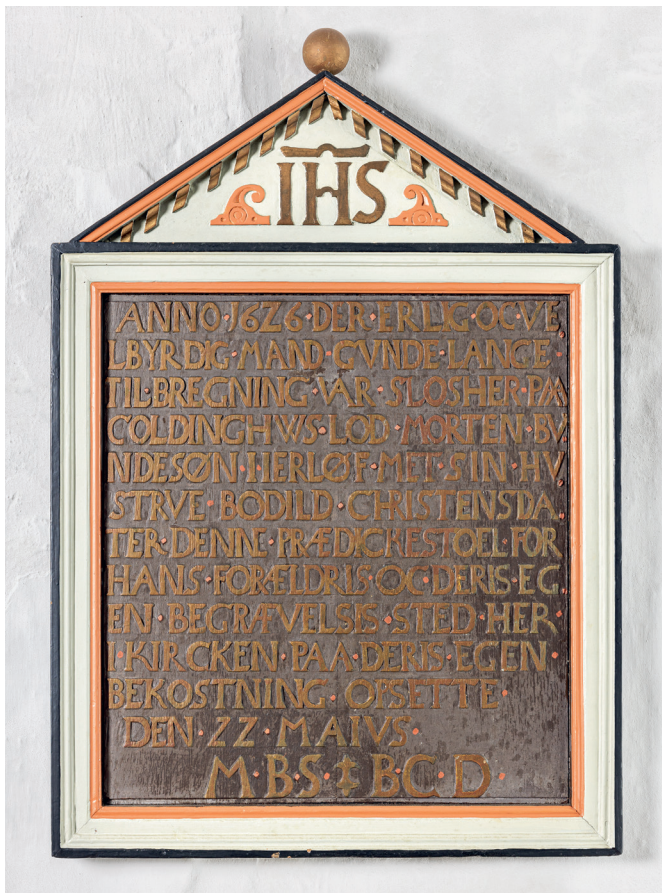 IHS
ANNO·1626·DER·ERLIG·OC·VE
LBYRDIG·MAND·GVNDE·LANGE·
TIL·BREGNING·VAR·SLOSHER·PAA
COLDINGHWS·LOD·MORTEN·BV
NDESØN·HERLØF·MET·SIN·HV
STRVE·BODILD·CHRISTENSDA
TER·DENNE·PRÆDICKESTOEL·FOR
HANS·FORÆLDRIS·OC·DERIS·EG
EN·BEGRÆVELSIS·STED·HER·
I·KIRCKEN·PAA·DERIS·EGEN·
BEKOSTNING·OPSETTE·
DEN·22·MAIVS·
M·B·S·‡·B·C·D·